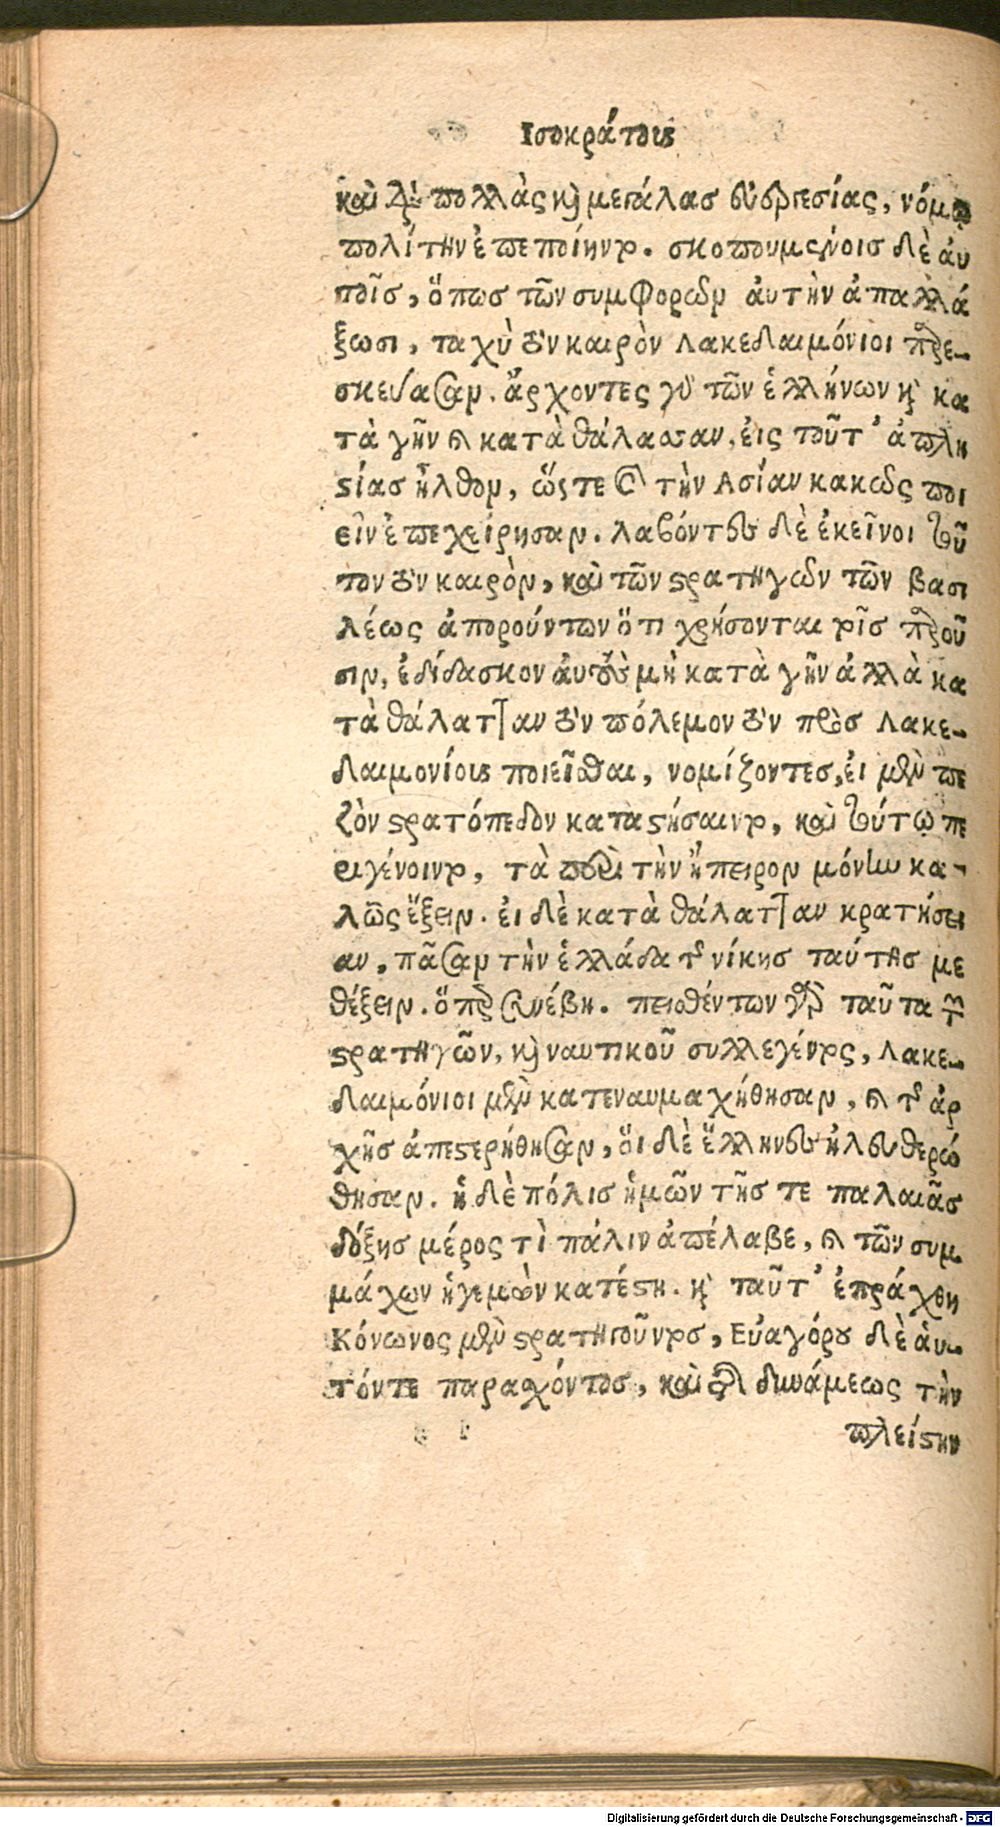 Ισοκράτους
καὶ διὰ πολλὰς καὶ μεγάλας εὐεργεσίας, νόμῳ
πολίτην ἐπεποίηντο. σκοπουμένοις δὲ αυ
τοῖς, ὅπως τῶν συμφορῶν ἀυτὴν ἀπαλλά
ξωσι, ταχὺ τὸν καιρὸν Λακεδαιμόνιοι παρε-
σκεύασαν. ἄρχοντες γὰρ τῶν ἑλλήνων καὶ κα
τὰ γῆν καὶ κατὰ θάλασσαν, ἐις τοῦτ' ἀπλη
στίας ἦλθον, ὥστε καὶ τὴν Ασίαν κακῶς ποι
εῖν ἐπεχείρησαν. λαβόντες δὲ ἐκεῖνοι τοῦ
τον τὸν καιρὸν, καὶ τῶν στρατηγῶν τῶν βασι
λέως ἀπορούντων ὅτι χρήσονται τοῖς παροῦ
σιν, ἐδίδασκον ἀυτοὺς μὴ κατὰ γῆν ἀλλὰ κα
τὰ θάλατταν τὸν πόλεμον τὸν πρὸς Λακε-
δαιμονίους ποιεῖσθαι, νομίζοντες, ἐι μὲν πε
ζὸν στρατόπεδον καταστήσαιντο, καὶ τούτῳ πε
ριγένοιντο, τὰ περὶ τὴν ἤπειρον μόνην κα-
λῶς ἕξειν. ἐι δὲ κατὰ θάλατταν κρατήσει
αν, πᾶσαν τὴν ἑλλάδα τῆς νίκης ταύτης με
θέξειν. ὅπερ συνέβη. πεισθέντων γὰρ ταῦτα τῶν
στρατηγῶν, καὶ ναυτικοῦ συλλεγέντος, Λακε-
δαιμόνιοι μὲν κατεναυμαχήθησαν, καὶ τῆς ἀρ
χῆς ἀπεστερήθησαν, ὅι δὲ ἕλληνες ἠλευθερώ
θησαν. ἡ δὲ πόλις ἡμῶν τῆς τε παλαιᾶς
δόξης μέρος τὶ πάλιν ἀπέλαβε, καὶ τῶν συμ
μάχων ἡγεμὼν κατέστη. καὶ ταῦτ' ἐπράχθη
Κόνωνος μὲν στρατηγοῦντος, Εὐαγόρου δὲ ἁυ-
τόν τε παρασχόντος, καὶ τῆς δυνάμεως τὴν
πλείστην
Digitalisierung gefördert durch die Deutsche Forschungsgemeinschaft - DFG